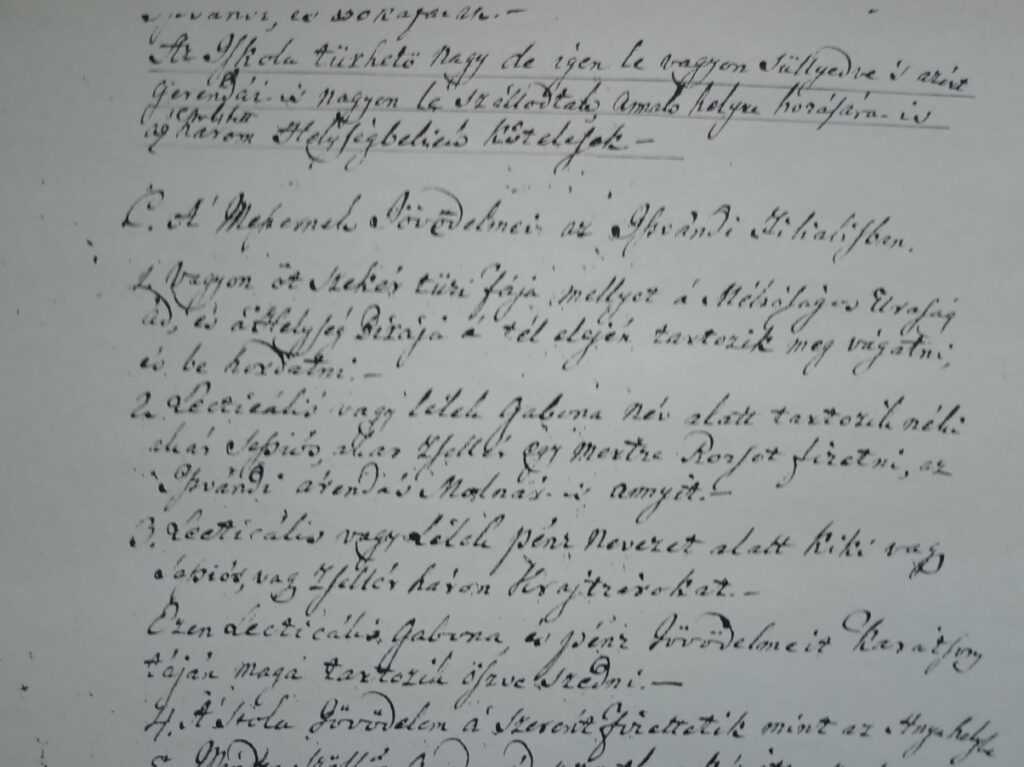 Az Iskola türhetö nagy de igen le vagyon süllyedve és azért
Gerendái is nagyon le szállodtak, amals helyre hozására is
az három Helységbeliek kötelesek —
C. A' Mesternek Jövödelmei az Istvándi Filialisban.
1. Vagyon öt szekér tüzi fája, mellyet á Méltóságos Uraság
ád, és á Helység Birája á tél elején tartozik meg vágatni,
és be hordatni. —
2. Lecticális vagy lélek Gabona név alatt tartozik néki
akár Sessiós, akar Zsellér egy mertze Rozsot fizetni, az
Istvándi árendás Molnár is annyit. —
3. Lecticális vagy Lélek pénz nevezet alatt kiki vagy
Sessiós, vagy Zsellér három Krajtzárokat. —
Ezen Lecticális Gabona, és pénz Jövödelmeit Karátsony
táján maga tartozik öszve szedni. —
4. Á Stóla Jövödelem á szerént fizettetik mint az Anya helybe